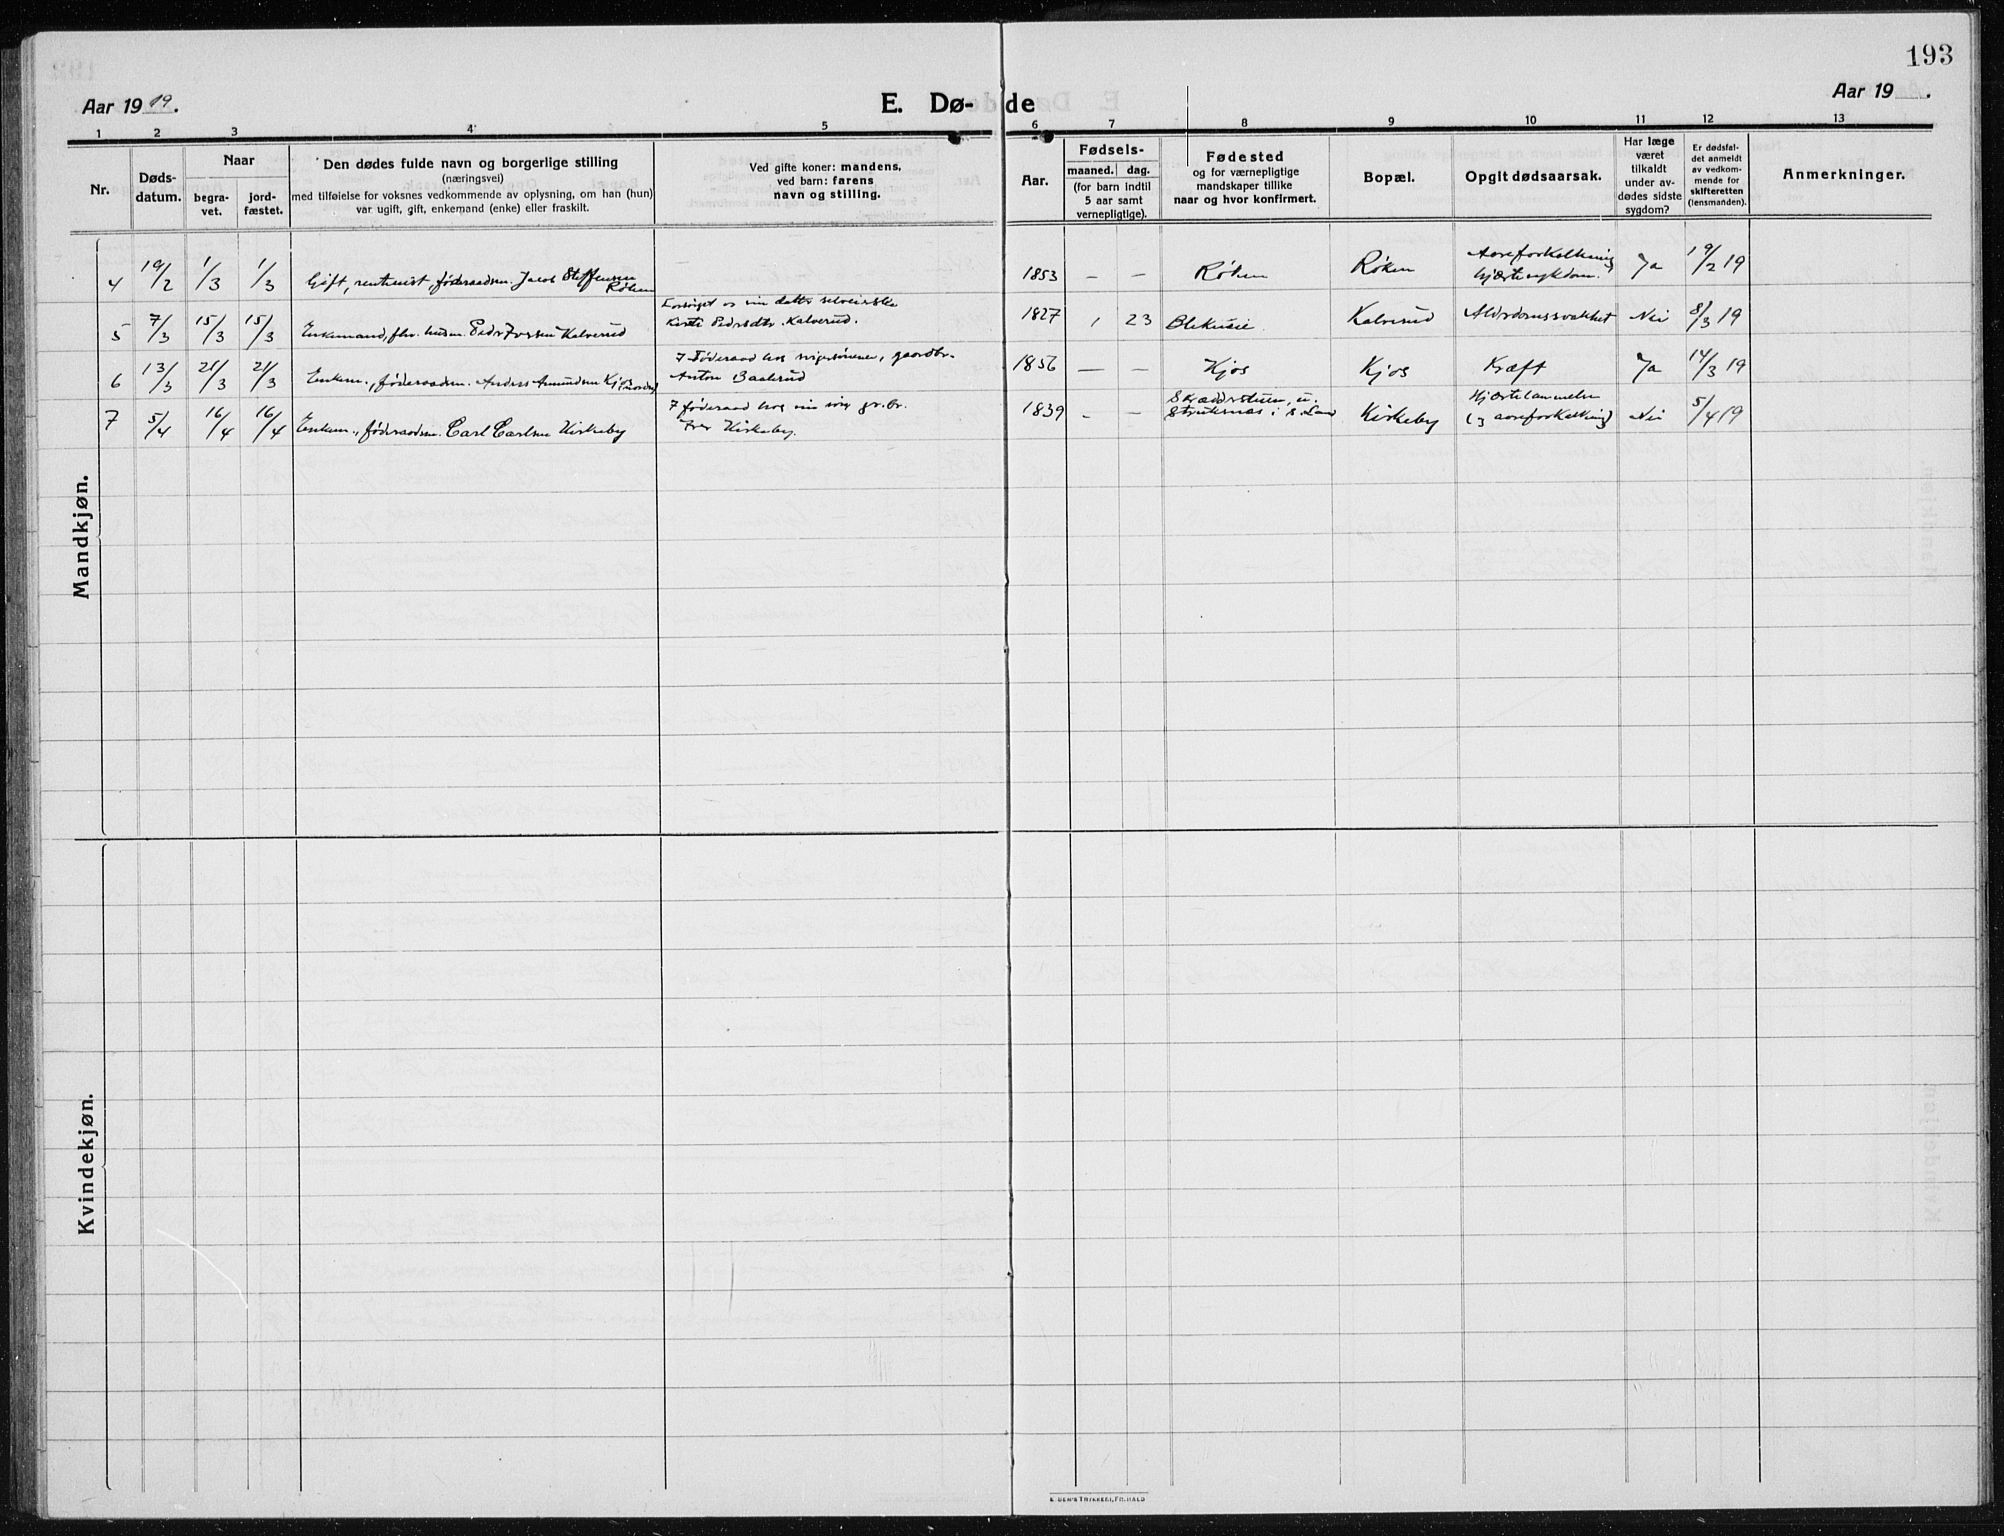 193
Aar 1919.
E. Dø-
de
Aar 19 .
1 2 3 4 5 6 7 8 9 10 11 12 13
Nr.
Døds-
datum.
Naar
begra-
vet.
jord-
fæstet.
Den dødes fulde navn og borgerlige stilling
(næringsvei)
med tilføielse for voksnes vedkommende av oplysning, om han (hun)
var ugift, gift, enkemand (enke) eller fraskilt.
Ved gifte koner: mandens,
ved barn: farens
navn og stilling.
Aar.
Fødsels-
maaned. dag.
(for barn indtil
5 aar samt
vernepligtige).
Fødested
og for værnepligtige
mandskaper tillike
naar og hvor konfirmert.
Bopæl.
Opgit dødsaarsak.
Har læge
været
tilkaldt
under av-
dødes sidste
sygdom?
Er dødsfal-
det anmeldt
av vedkom-
mende for
skifteretten
(lensmanden).
Anmerkninger.
Mandkjøn.
4 19/2 1/3 1/3 Gift, rentenist, føderaadsm. Jacob Steffensen
Røken
1853 — — Røken Røken Aareforkalkning
hjertesykdom. Ja 19/2 19
5 7/3 15/3 15/3 Enkemand, fhv. husm. Peder Iversen Kalverud
Forsørget os sin datter selveierske
Kirsti Pedersdtr. Kalverud.
1827 1 23 Blekusie Kalverud Alderdomssvakhet Nei 8/3 19
6 13/3 21/3 21/3 Enkem., føderaadsm. Anders Amundsen Kjos
I Føderaad hos svigersønnen, gaardbr.
Anton Baalerud
1856 — — Kjos Kjos Kræft Ja 14/3 19
7 5/4 16/4 16/4 Enkem., føderaadsm. Carl Carlsen Kirkeby
I føderaad hos sin søn gr.br.
Iver Kirkeby.
1839 — — Skrædderstuen, u.
i S. Land Kirkeby Hjertelammelse
(aareforkalkning) Nei 5/4 19
Kvindekjøn.